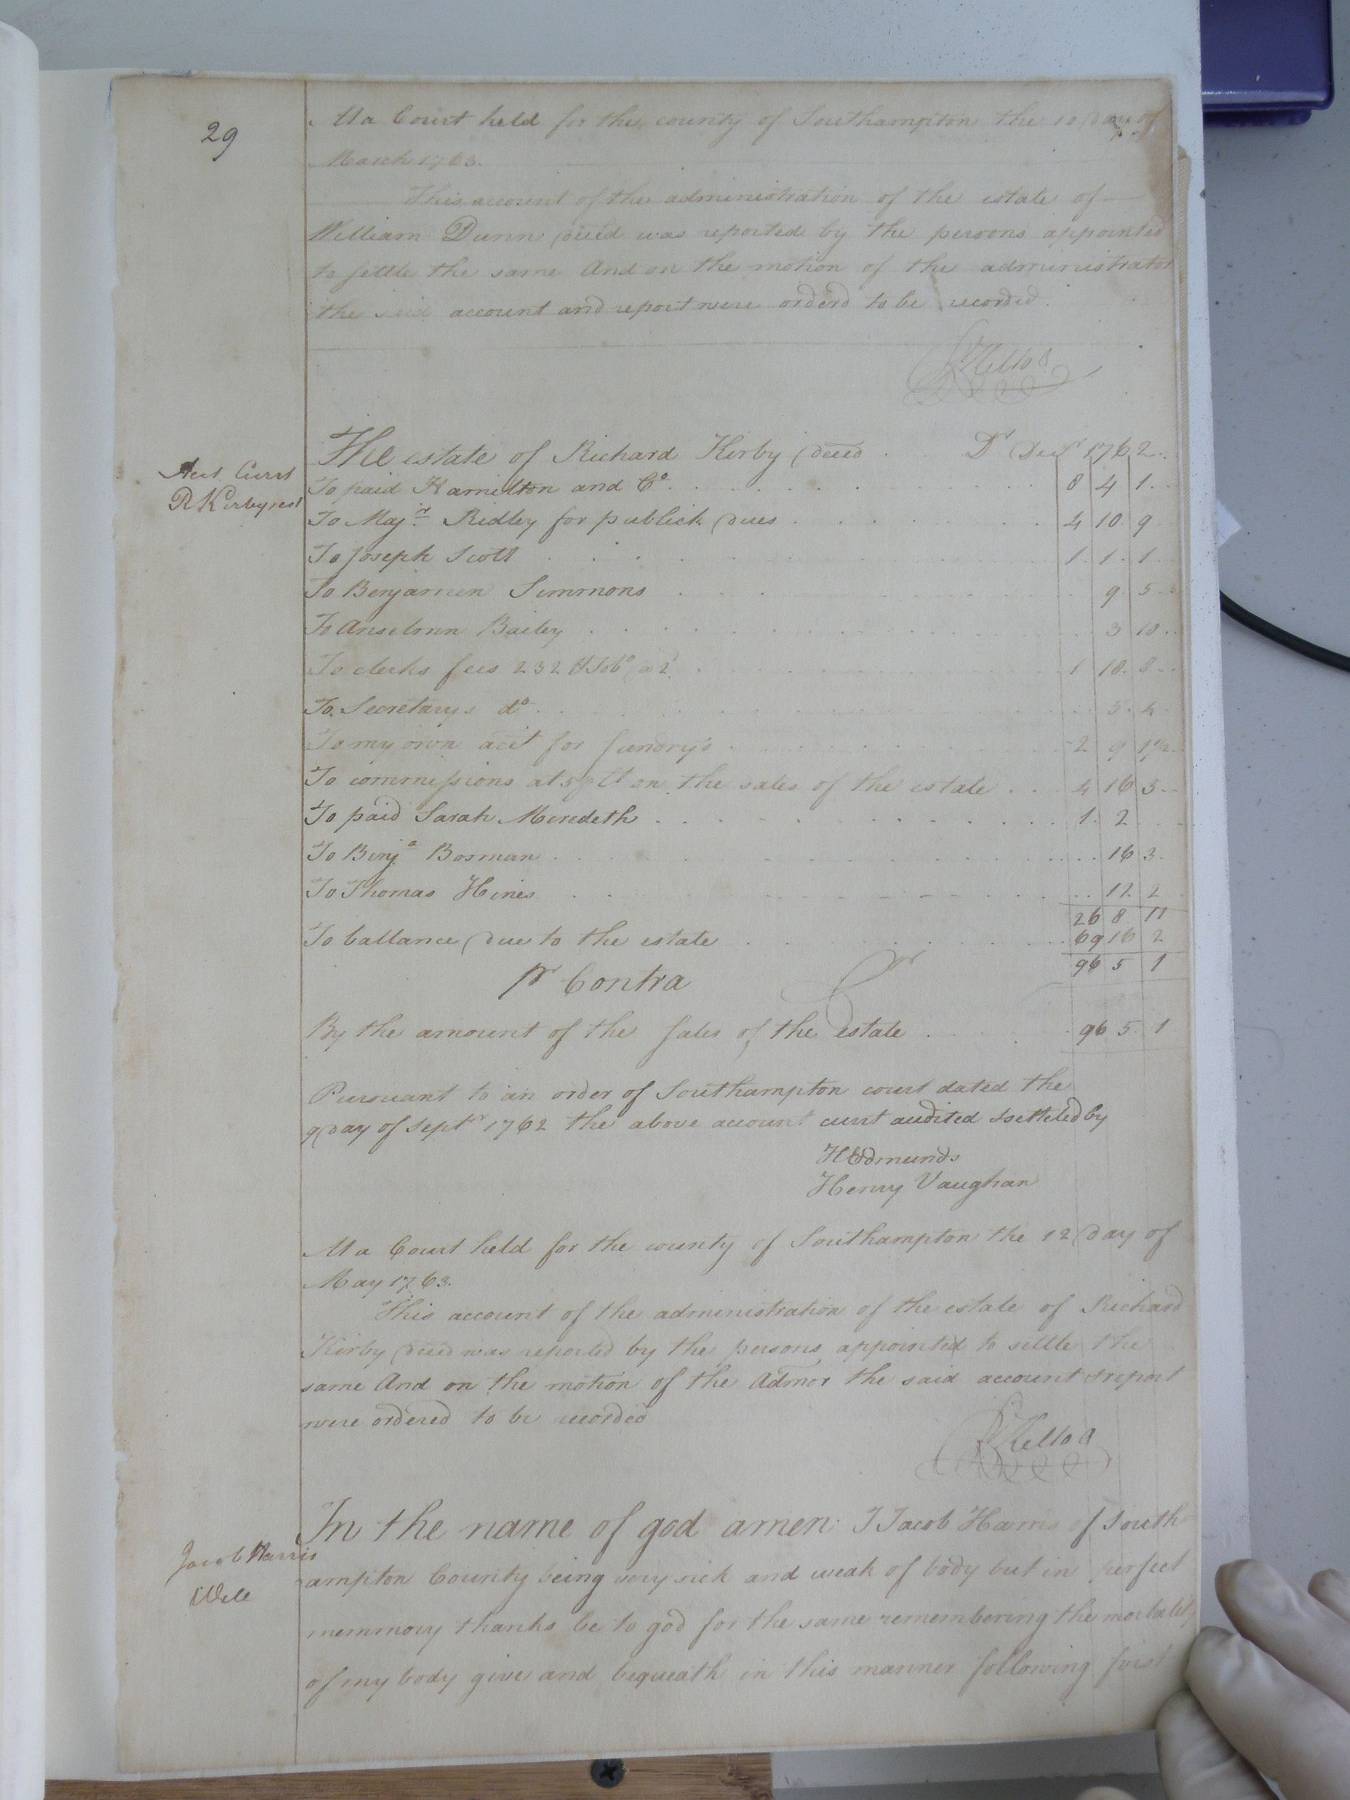 29
At a Court held for the county of Southampton the 10 day of
March 1763.
This account of the administration of the estate of
William Dunn deced was reported by the persons appointed
to settle the same And on the motion of the administrator
the said account and report were orderd to be recorded.
RKello
Acct Currt
R Kirbys est
The estate of Richard Kirby deced Dr Decr 1762
To paid Hamilton and Co. 8 4 1
To Majr Ridley for publick dues 4 10 9
To Joseph Scott 1 1 1
To Benjamin Simmons 9 5
To Anselmn Bailey 3 10
To clerks fees 232 Tobo a 2 1 18 8
To Secretarys do 5 4
To my own acct for sundry's 2 9 1 1/2
To commissions at 5 pCt on the sales of the estate 4 16 3
To paid Sarah Meredeth 1 2
To Benja Bosman 16 3
To Thomas Hines 11 2
26 8 11
To ballance due to the estate 69 16 2
96 5 1
pr Contra Cr
By the amount of the sales of the estate 96 5 1
Pursuant to an order of Southampton court dated the
9 day of Septr 1762 the above account currt audited & settled by
HEdmunds
Henry Vaughan
At a Court held for the county of Southampton the 12 day of
May 1763.
This account of the administration of the estate of Richard
Kirby deced was reported by the persons appointed to settle the
same And on the motion of the Admor the said account & report
were ordered to be recorded
RKello
Jacob Harris
Will
In the name of god amen I Jacob Harris of South
ampton County being very sick and weak of body but in perfect
memmory thanks be to god for the same remembering the mortality
of my body give and bequeath in this manner following first